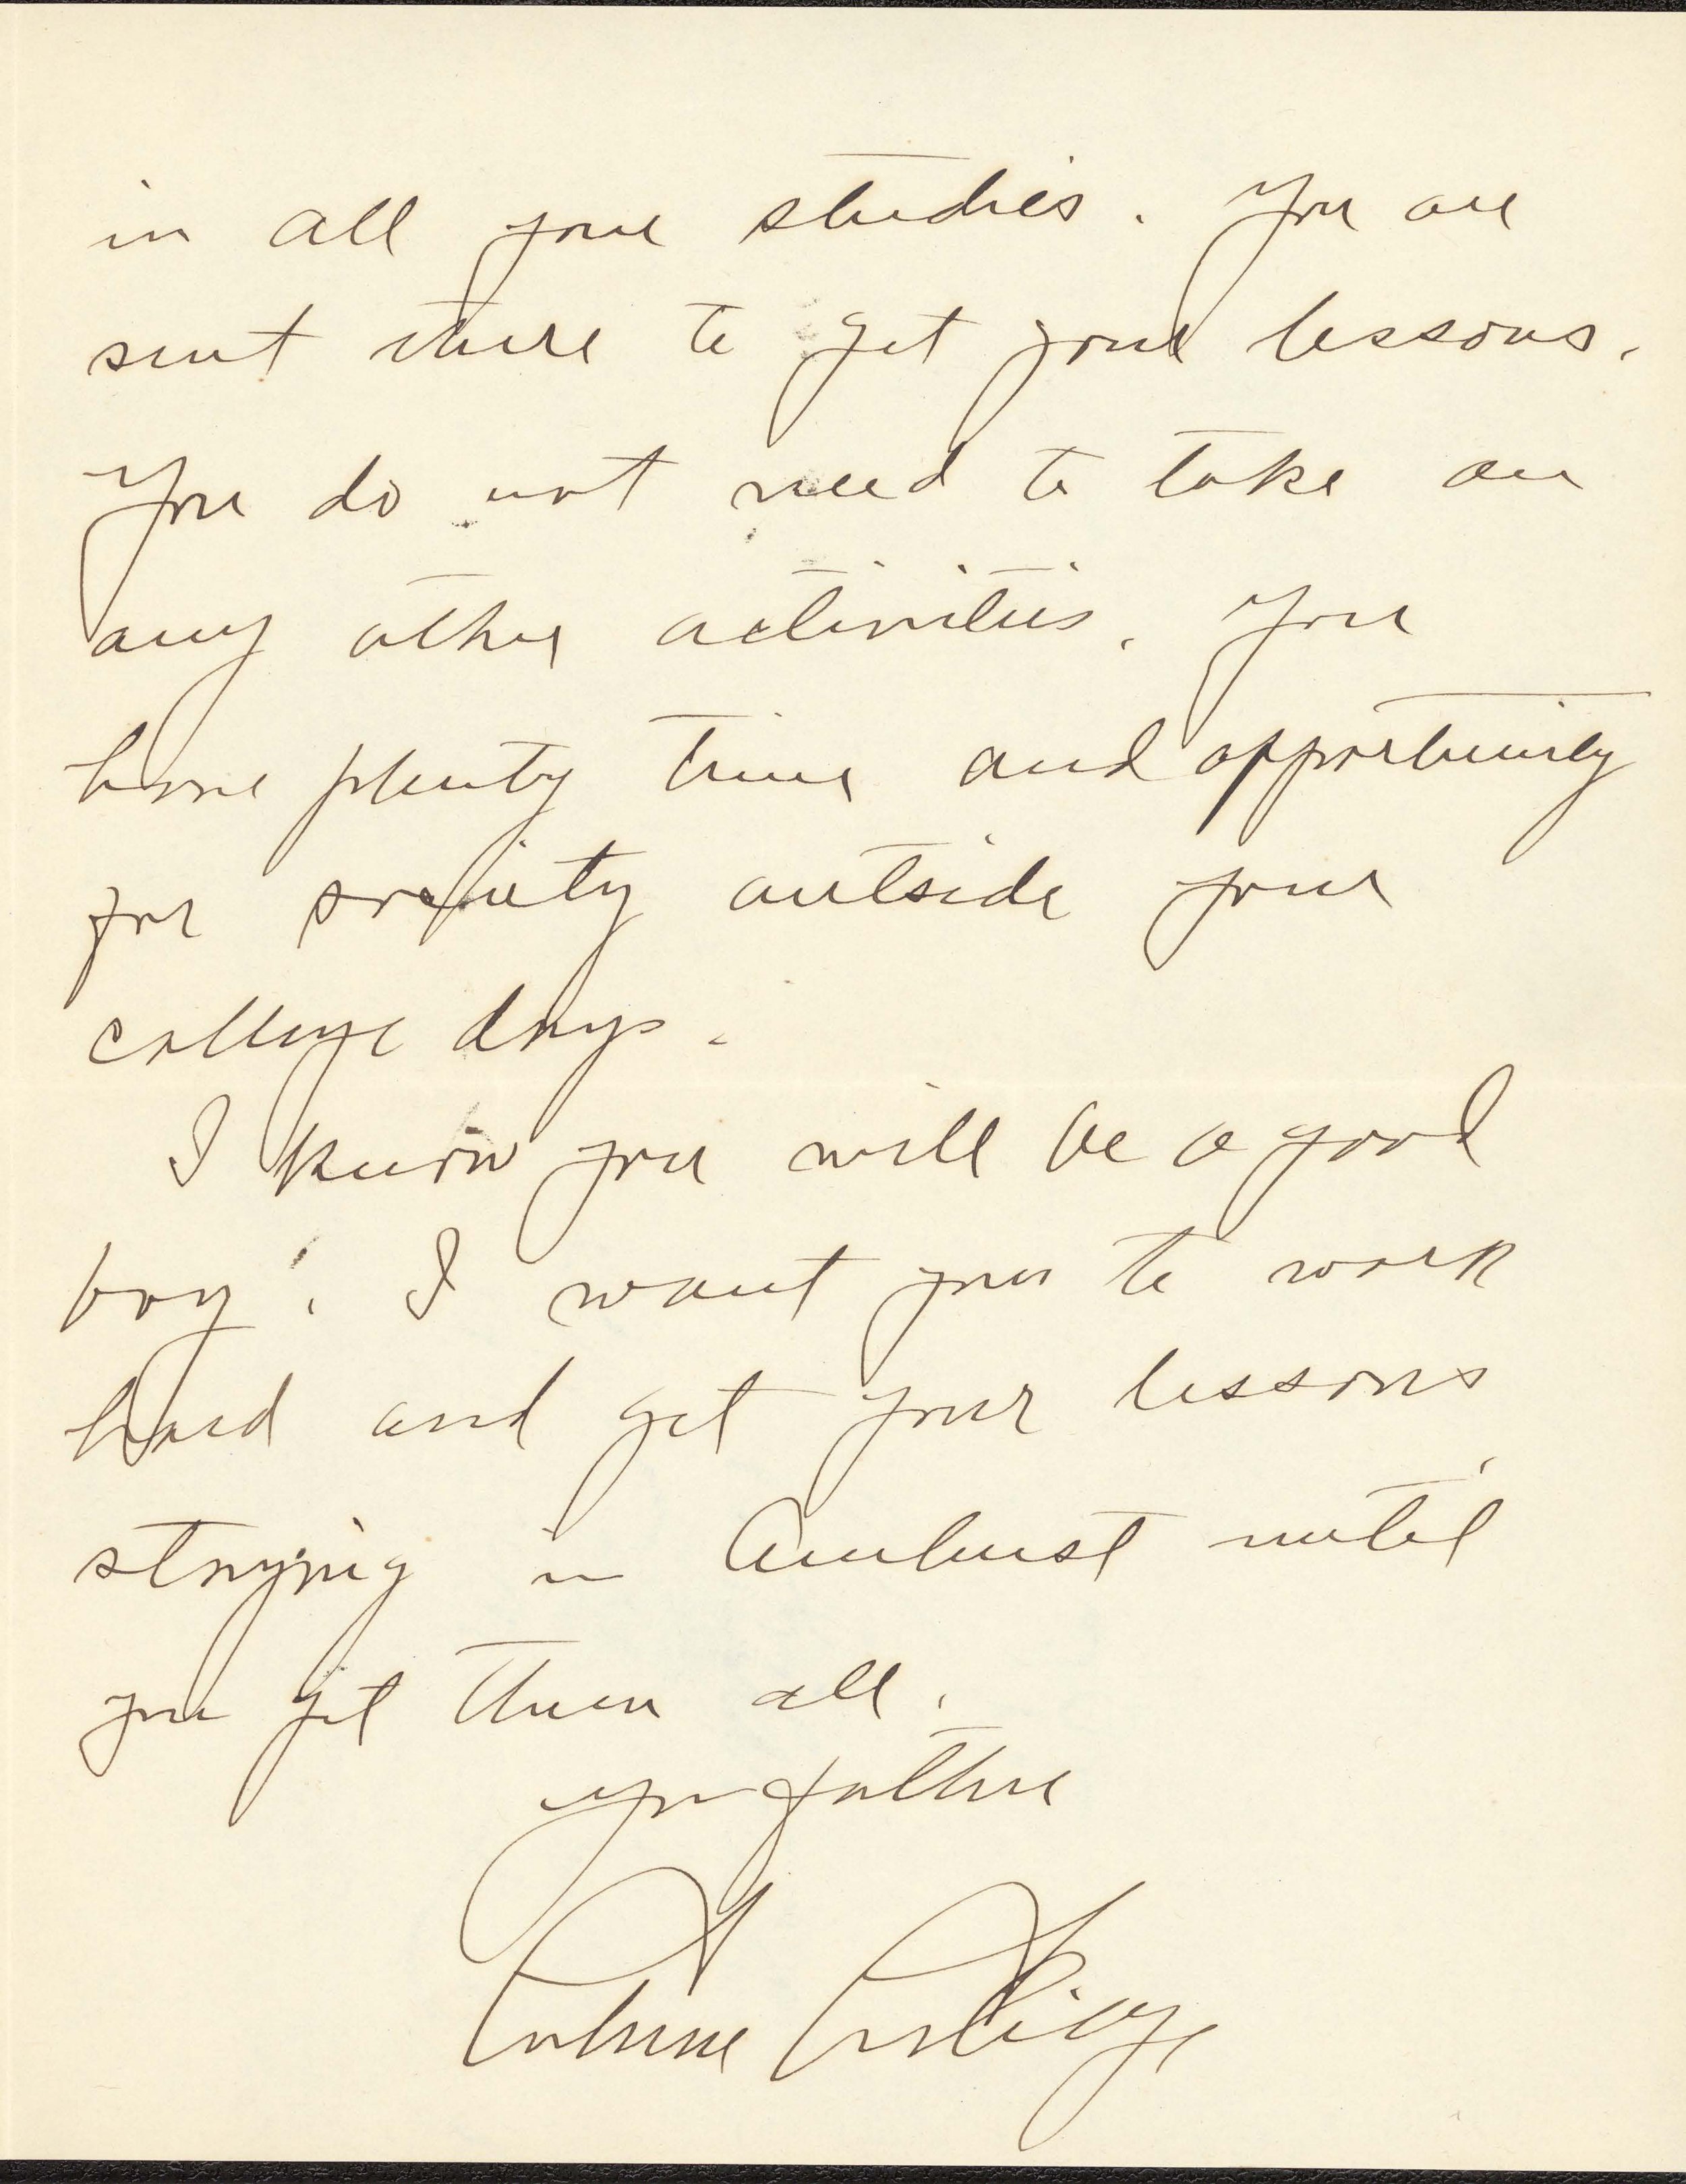 in all your studies. You are
sent there to get your lessons.
You do not need to take on
any other activities. You
have plenty time and opportunity
for society outside your
college days.
I know you will be a good
boy. I want you to work
hard and get your lessons
staying in Amherst until
you get them all.
Your father
Calvin Coolidge